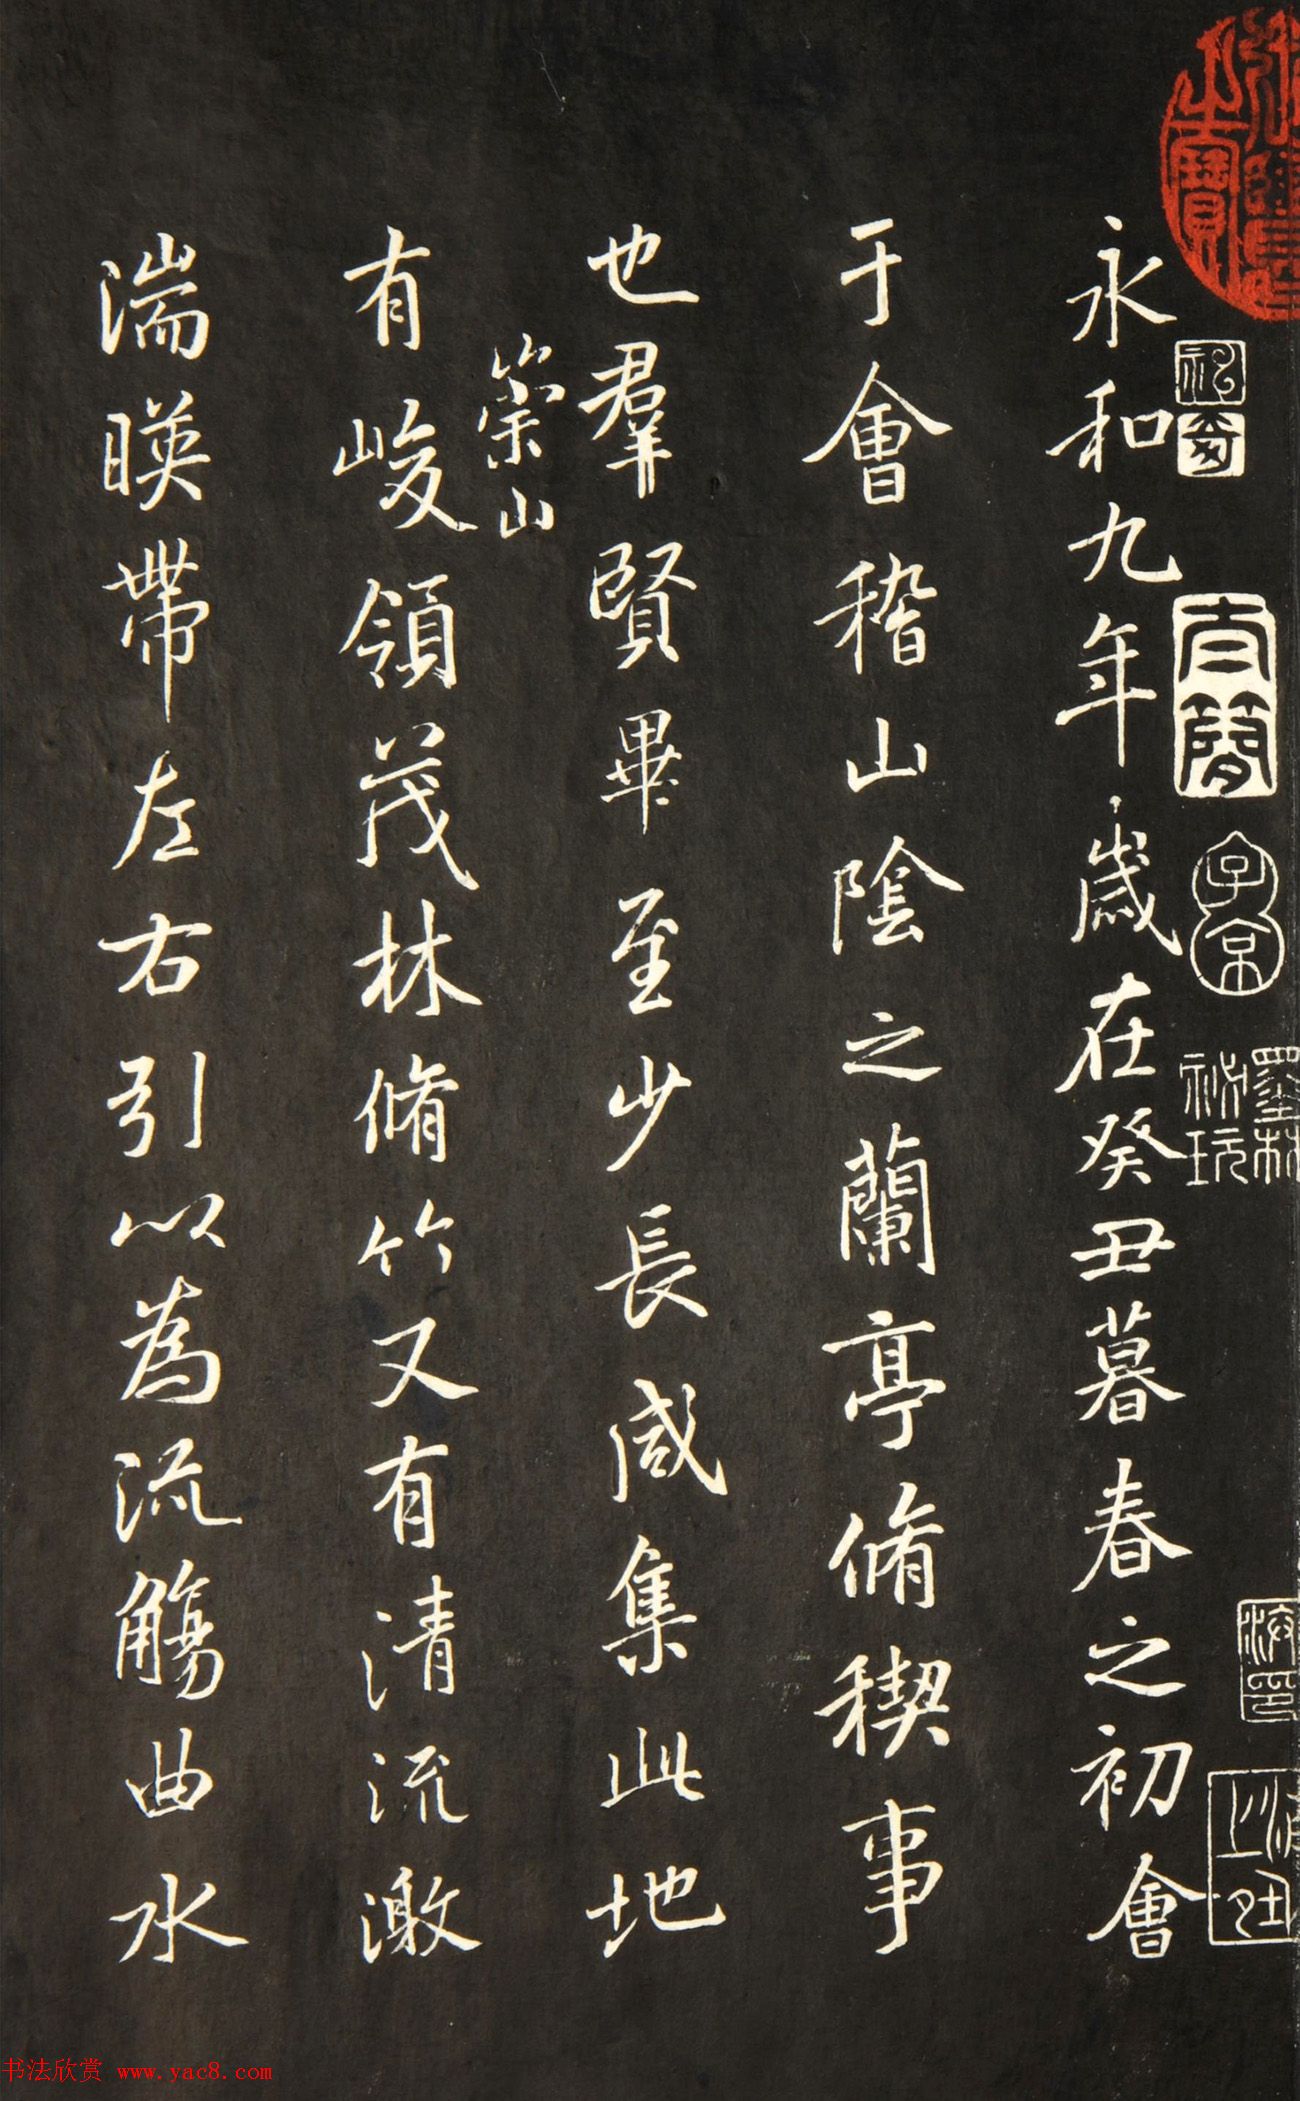 子京
墨林秘玩
永和九年歲在癸丑暮春之初會
于會稽山陰之蘭亭脩稧事
也羣賢畢至少長咸集此地
崇山
有峻領茂林脩竹又有清流激
湍暎帶左右引以為流觴曲水
书法欣赏 www.yac8.com